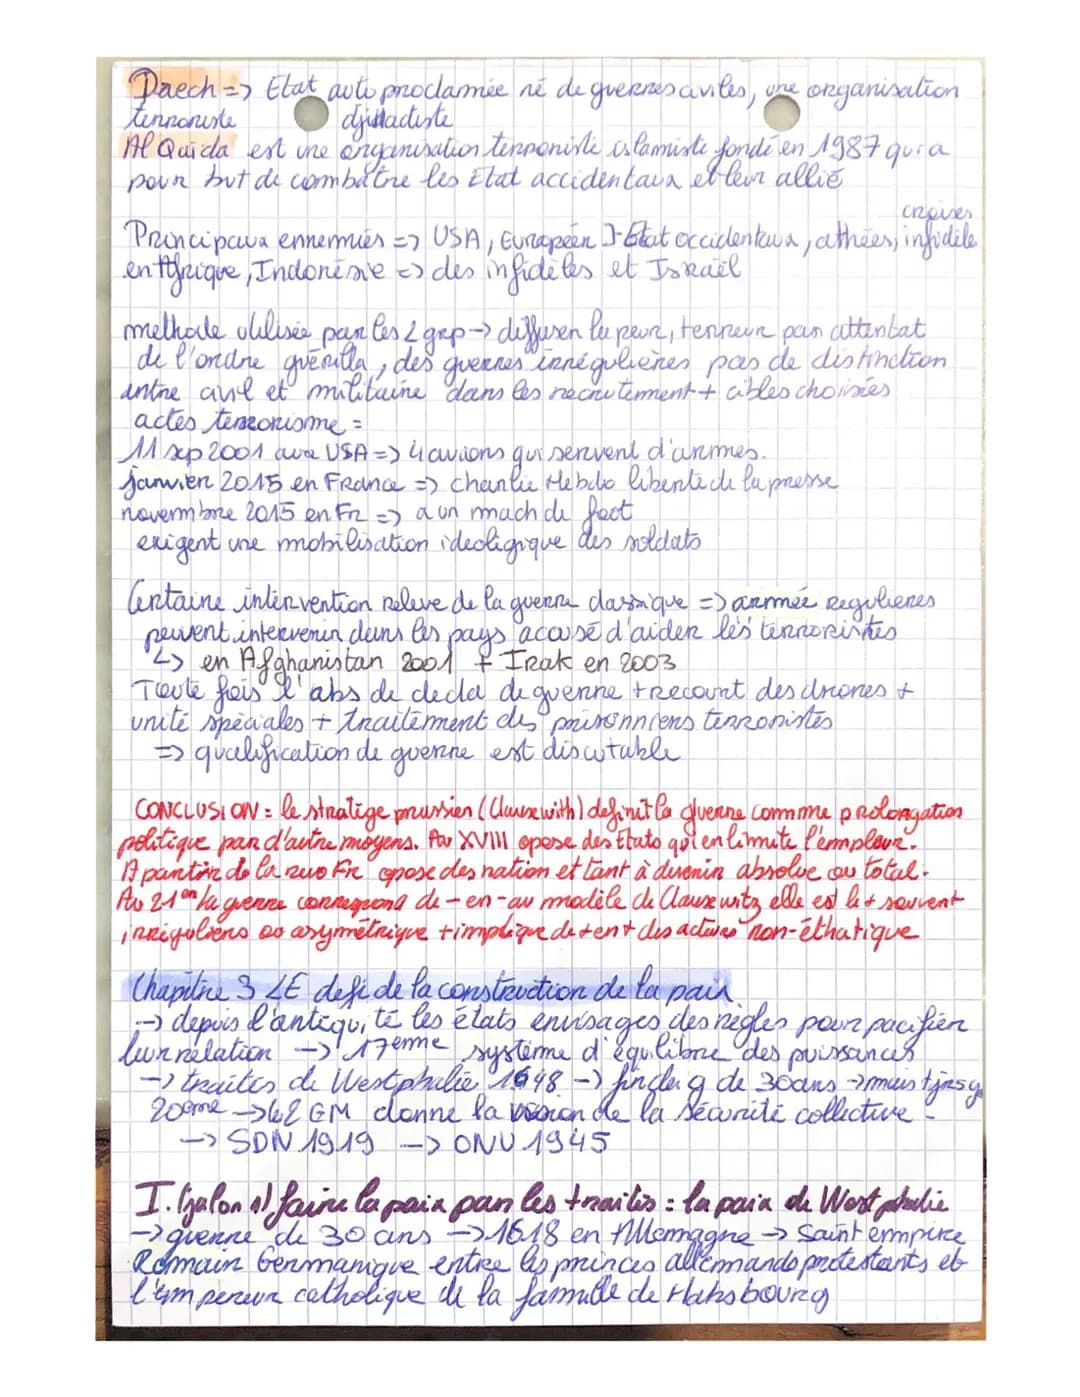 Daech => Etat auto proclamée né de guerres civiles, une organisation
terroriste djihadiste
Al Quaida est une organisation terroriste islamiste fondé en 1987 qui a
pour but de combatre les Etat accidentaux et leur allié
croisés
Principaux ennemies => USA, Européen ]-Etat occidentaux, athées, infidèle
en Afrique, Indonésie => des infidèles et Israël
methode utilisée par les 2 grp -> diffuser la peur, terreur par attentat
de l'ordre guérilla, des guerres irrégulières pas de distinction
entre civil et militaire dans les recrutement + cibles choisies
actes terrorisme =
11 sep 2001 aux USA => 4 avions qui servent d'armes.
janvier 2015 en France => charlie Hebdo liberté de la presse
novembre 2015 en Fr => a un mach de foot
exigent une mobilisation idéoligique des soldats
Certaine intervention releve de la guerre classique => armée regulieres
peuvent intervenir dans les pays accusé d'aider les terroristes
↳ en Afghanistan 2001 + Irak en 2003
Toute fois l'abs de decla de guerre + recourt des drones +
unité spéciales + traitement des prisonniers terroristes
=> qualification de guerre est discutable
CONCLUSION = le stratège prussien (Clausewith) definit la guerre comme prolongation
politique par d'autre moyens. Au XVIII opose des Etats qui en limite l'emploi.
A partir de la révo Fr opose des nation et tant à devenir absolue ou total.
Au 21 la guerre correspond de - en - au modèle de Clausewitz elle est le + souvent
irréguliers ou asymétrique + implique de + en + des acteurs non-éthatique
Chapitre 3 LE defi de la construction de la paix
-> depuis l'antiquité les états envisages des règles pour pacifier
leur relation -> 17eme système d'équilibre des puissances
-> traités de Westphalie 1648 -> fin de g de 30ans -> mais tjrs g
20eme -> les 2 GM donne la vision de la sécurité collective -
-> SDN 1919 -> ONU 1945
I. (jalon 1) faire la paix par les traités : la paix de Westphalie
-> guerre de 30 ans -> 1618 en Allemagne -> Saint empire
Romain Germanique entre les princes allemands protestants et
l'empereur catholique de la famille de Habsbourg